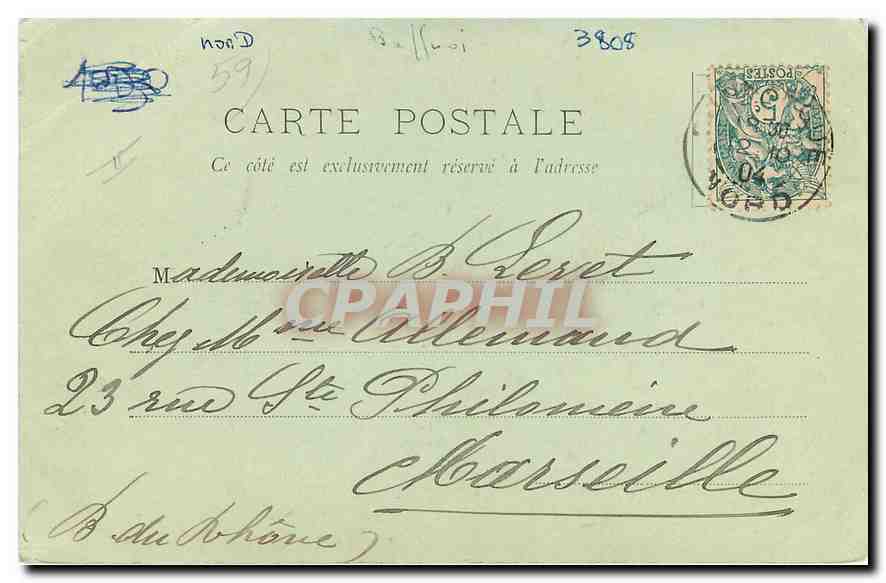 norD 3808
59)
POSTES
CARTE POSTALE
Ce côté est exclusivement réservé à l'adresse
04
NORD
Mademoiselle B. Leret
CPAPHIL
Chez Mme Allemand
23 rue Ste Philomène
Marseille
(B du Rhône)